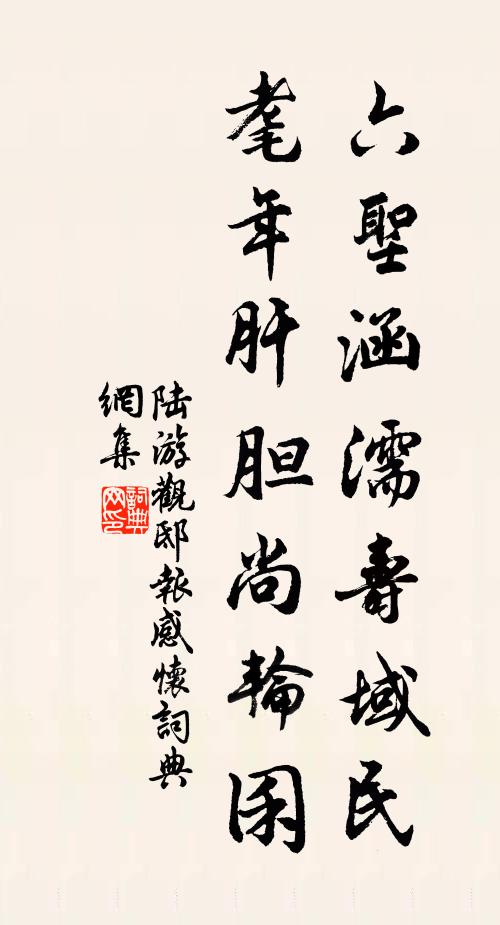 六聖涵濡壽域民
耄年肝胆尚輪囷
陆游觀邸報感懷詞典
網集
詞典
网印